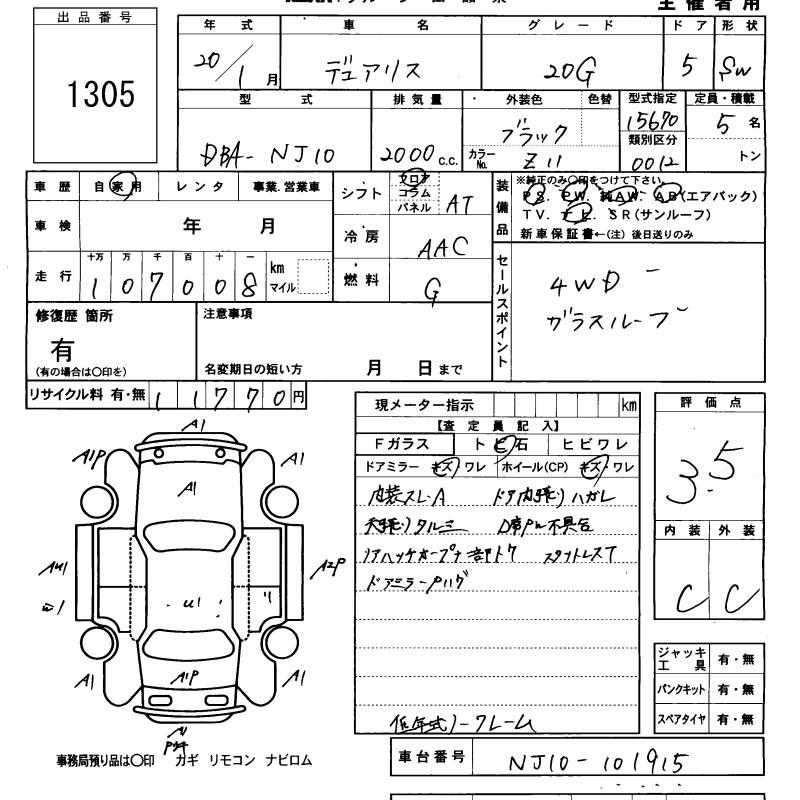 主催者用
出品番号
1305
年式 車名 グレード ドア 形状
20/1月 デュアリス 20G 5 SW
型式 排気量 外装色 色替 型式指定 定員・積載
DBA-NJ10 2000c.c. ブラック 15670 5名
カラーNo. Z11 類別区分 0012 トン
車歴 自家用 レンタ 事業.営業車
シフト フロア コラム パネル AT
装備品 ※純正のみ〇印をつけて下さい。
PS. PW. 純AW. AB(エアバック)
TV. ナビ. SR(サンルーフ)
新車保証書←(注)後日送りのみ
車検 年 月
冷房 AAC
走行 十万 万 千 百 十 一
107008 km マイル
燃料 G
セールスポイント
4WD
ガラスルーフ
修復歴 箇所
有
(有の場合は〇印を)
注意事項
名変期日の短い方 月 日まで
リサイクル料 有・無 11770円
現メーター指示 km
【査定員記入】
Fガラス トビ石 ヒビワレ
ドアミラー キズ・ワレ ホイール(CP) キズ・ワレ
内装スレ・A ドア内張りハガレ
天張りタルミ
ドアミラー
低年式ノークレーム
評価点
3.5
内装 外装
C C
ジャッキ工具 有・無
パンクキット 有・無
スペアタイヤ 有・無
A1
A1P A1
A1
A2P
U1
A1P
A1 A1
事務局預り品は〇印 カギ リモコン ナビロム
車台番号 NJ10-101915